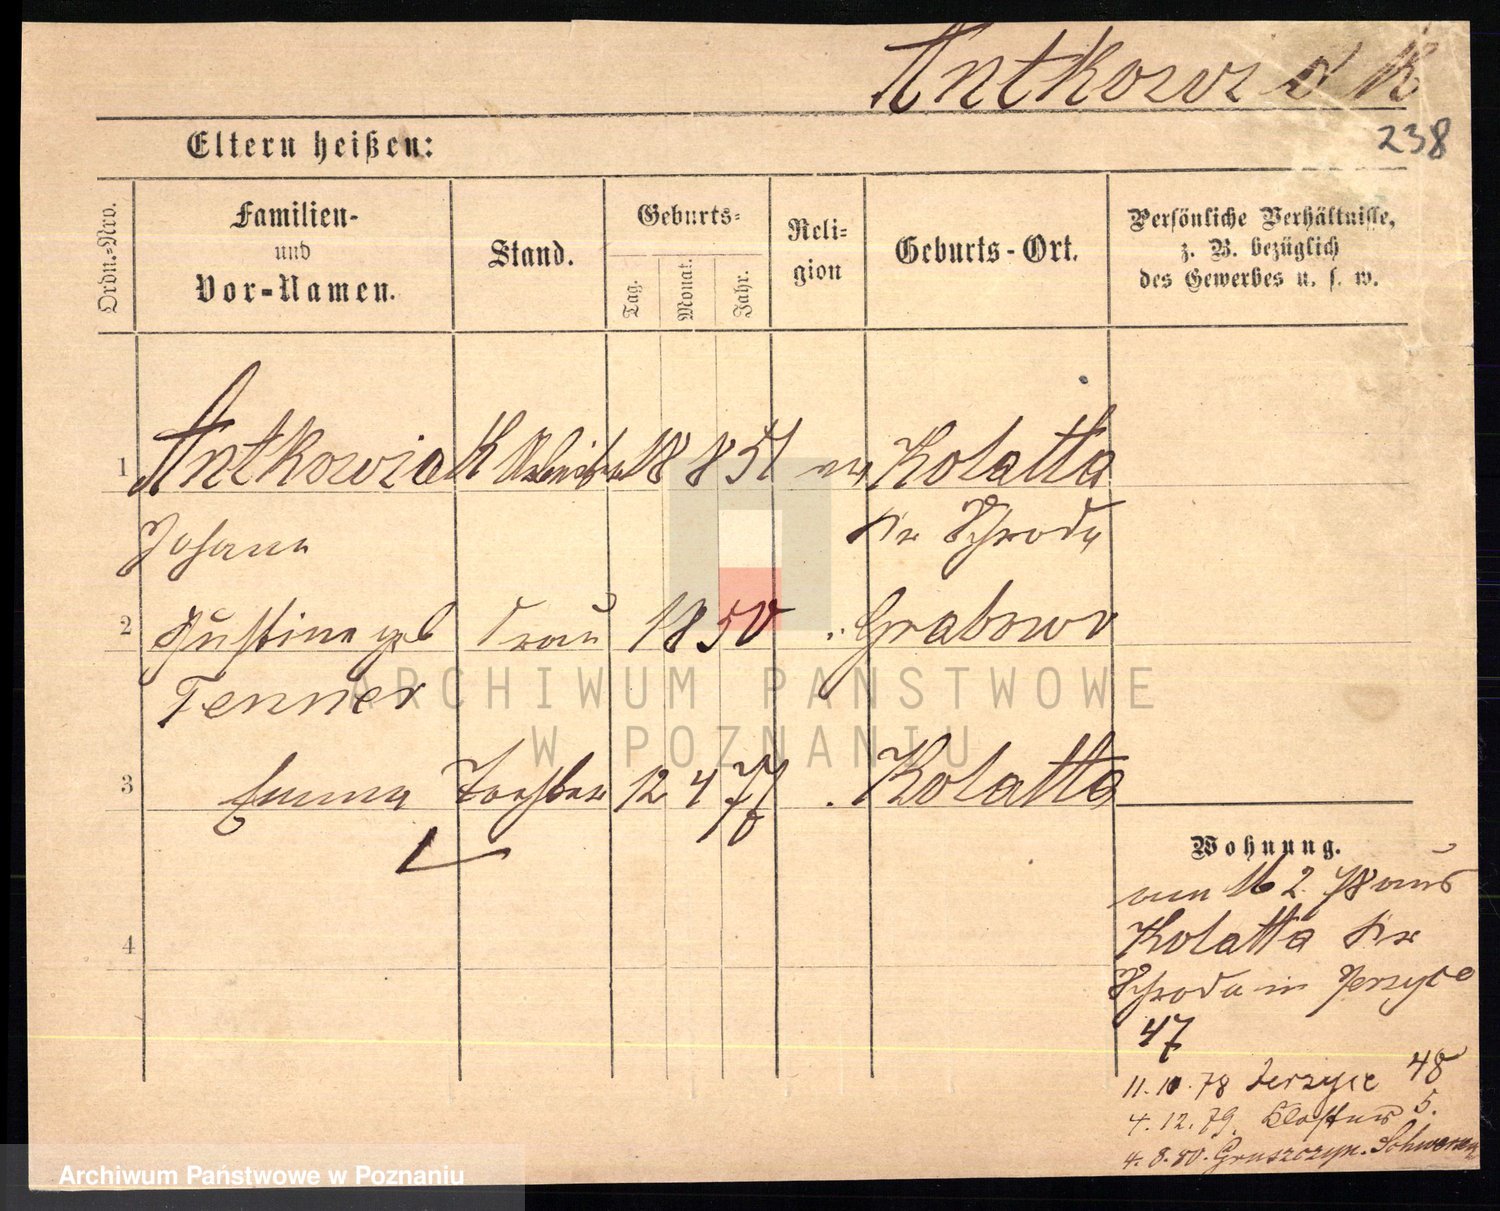 Antkowiak
238
Eltern heißen:
Ordn.-Nro.
Familien-
und
Vor-Namen.
Stand.
Geburts-
Tag.
Monat.
Jahr.
Reli-
gion
Geburts-Ort.
Persönliche Verhältnisse,
z. B. bezüglich
des Gewerbes u. s. w.
1 Antkowiak Arbeiter 18 8 51 Kolatta
Johann Kr Schroda
2 Justina geb Frau 1850 " Grabowo
Tenner
ARCHIWUM PAŃSTWOWE
W POZNANIU
3 Emma Tochter 12 4 77 Kolatta
Wohnung.
am 16 2. 78 aus
Kolatta Kr
4
Schroda in Jerzyce
47
11. 10. 78 Jerzyce 48
4. 12. 79. 5.
4. 8. 80. Gruszczyn.
Archiwum Państwowe w Poznaniu